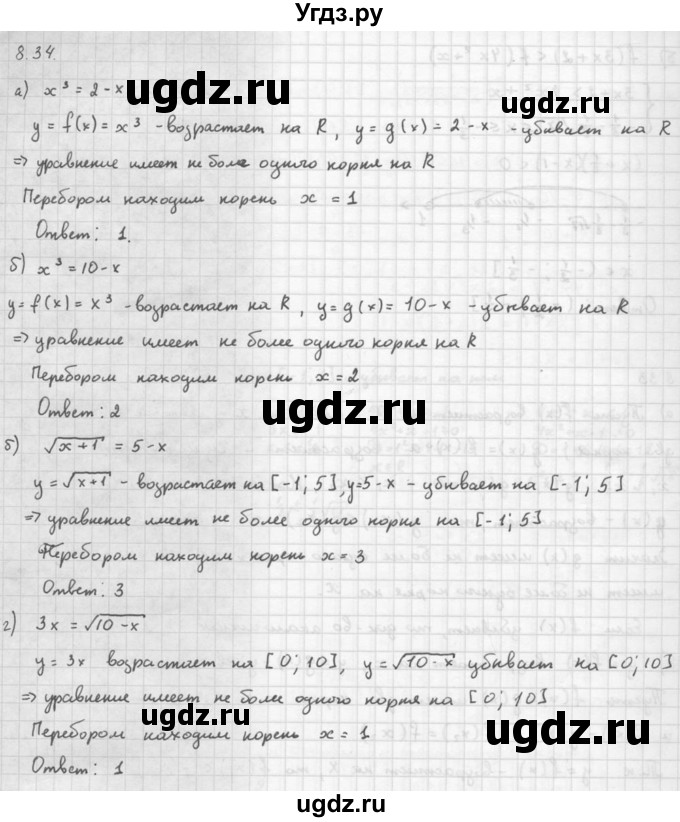 Угдз.ру
8.34.
а) x³ = 2 - x
y = f(x) = x³ - возрастает на R, y = g(x) = 2 - x - убывает на R
⇒ уравнение имеет не более одного корня на R
Перебором находим корень x = 1
Ответ: 1.
б) x³ = 10 - x
y = f(x) = x³ - возрастает на R, y = g(x) = 10 - x - убывает на R
⇒ уравнение имеет не более одного корня на R
Перебором находим корень x = 2
Ответ: 2
б) √(x+1) = 5 - x
y = √(x+1) - возрастает на [-1; 5], y = 5 - x - убивает на [-1; 5]
⇒ уравнение имеет не более одного корня на [-1; 5]
Перебором находим корень x = 3
Ответ: 3
г) 3x = √(10-x)
y = 3x возрастает на [0; 10], y = √(10-x) убивает на [0; 10]
⇒ уравнение имеет не более одного корня на [0; 10]
Перебором находим корень x = 1
Ответ: 1
ugdz.ru
ugdz.ru
ugdz.ru
ugdz.ru
ugdz.ru
ugdz.ru
ugdz.ru